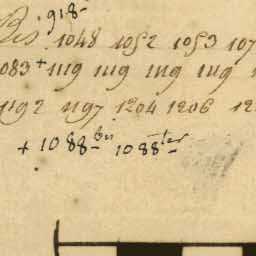 918
Bis 1048 1052 1053 107
083 + 1119 1119 1119 1119
1192 1197 1204 1206 12
+ 1088 bis 1088 ter